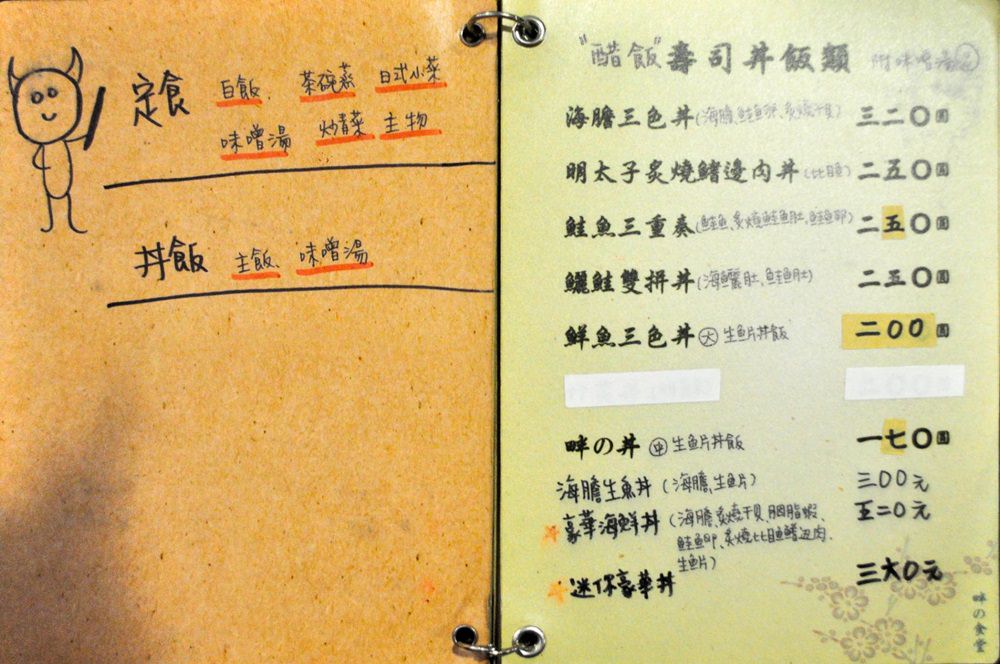 定食 白飯、茶碗蒸 日式小菜
味噌湯 炒青菜 主物
丼飯 主飯、味噌湯
"醋飯"壽司丼飯類 附味噌湯
海膽三色丼(海膽、鮭魚卵、炙燒干貝) 三二〇圓
明太子炙燒鰭邊肉丼(比目魚) 二五〇圓
鮭魚三重奏(鮭魚、炙燒鮭魚肚、鮭魚卵) 二五〇圓
鱺鮭雙拼丼(海鱺肚、鮭魚肚) 二五〇圓
鮮魚三色丼 大 生魚片丼飯 二00圓
畔の丼 中 生魚片丼飯 一七〇圓
海膽生魚丼(海膽、生魚片) 三00元
豪華海鮮丼(海膽、炙燒干貝、胭脂蝦、 五二0元
鮭魚卵、炙燒比目魚鰭边肉、
生魚片)
迷你豪華丼 三六0元
畔の食堂